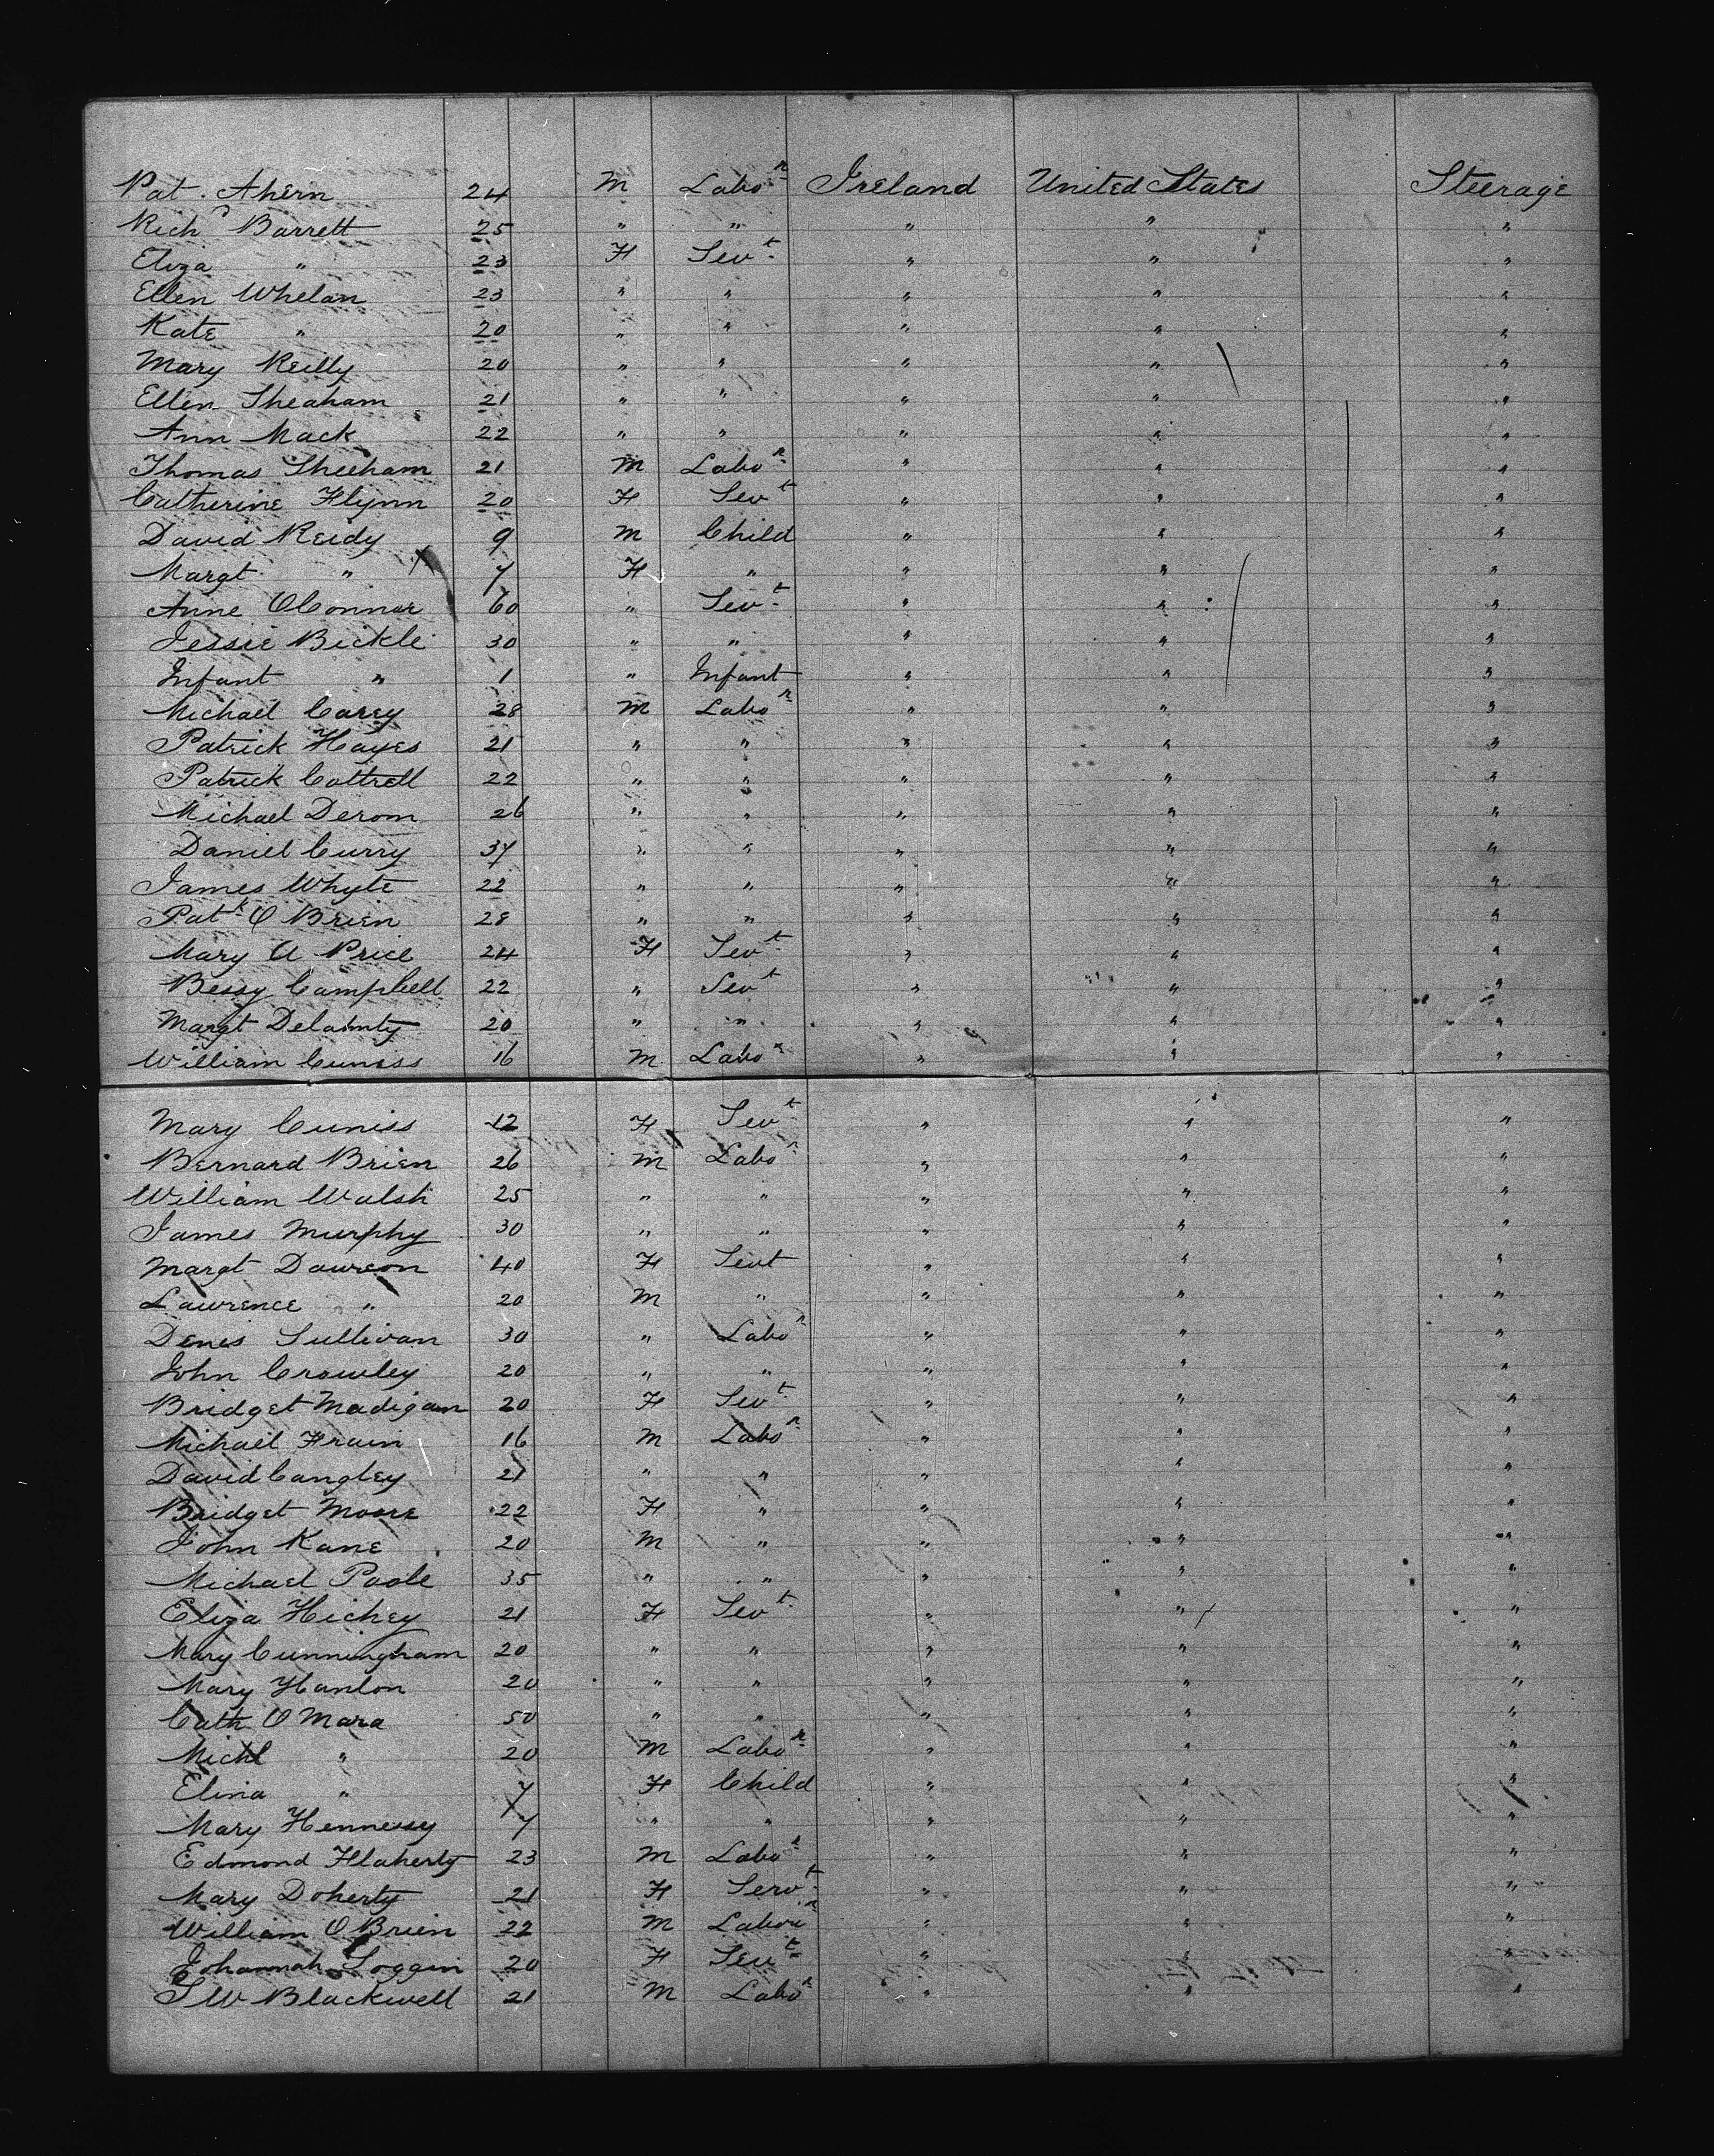 Pat. Ahern 24 M Labor Ireland United States Steerage
Richd Barrett 25 " " " " "
Eliza " 23 F Sevt " " "
Ellen Whelan 23 " " " " "
Kate " 20 " " " " "
Mary Reilly 20 " " " " "
Ellen Sheaham 21 " " " " "
Ann Mack 22 " " " " "
Thomas Sheeham 21 M Labor " " "
Catherine Flynn 20 F Sevt " " "
David Reidy 9 M Child " " "
Margt " 7 F " " " "
Anne OConnor 60 " Sevt " " "
Jessie Bickle 30 " " " " "
Infant " 1 " Infant " " "
Michael Carey 28 M Labor " " "
Patrick Hayes 21 " " " " "
Patrick Cottrell 22 " " " " "
Michael Derom 26 " " " " "
Daniel Curry 37 " " " " "
James Whyte 22 " " " " "
Patk O Brien 28 " " " " "
Mary A Price 24 F Sevt " " "
Bessy Campbell 22 " Sevt " " "
Margt Delahnty 20 " " " " "
William Cuniss 16 M Labor " " "
Mary Cuniss 12 F Sevt " " "
Bernard Brien 26 M Labor " " "
William Walsh 25 " " " " "
James Murphy 30 " " " " "
Margt Dawson 40 F Sevt " " "
Lawrence " 20 M " " " "
Denis Sullivan 30 " Labor " " "
John Crowley 20 " " " " "
Bridget Madigan 20 F Sevt " " "
Michael Frain 16 M Labor " " "
David Cangley 21 " " " " "
Bridget Moore 22 F " " " "
John Kane 20 M " " " "
Michael Poole 35 " " " " "
Eliza Hickey 21 F Sevt " " "
Mary Cunningham 20 " " " " "
Mary Hanlon 20 " " " " "
Cath O Mara 50 " " " " "
Michl " 20 M Labor " " "
Elina " 7 F Child " " "
Mary Hennessy 7 " " " " "
Edmond Flaherty 23 M Labor " " "
Mary Doherty 21 F Servt " " "
William O Brien 22 M Labour " " "
Johannah Loggin 20 F Sevt " " "
S W Blackwell 21 M Labor " " "